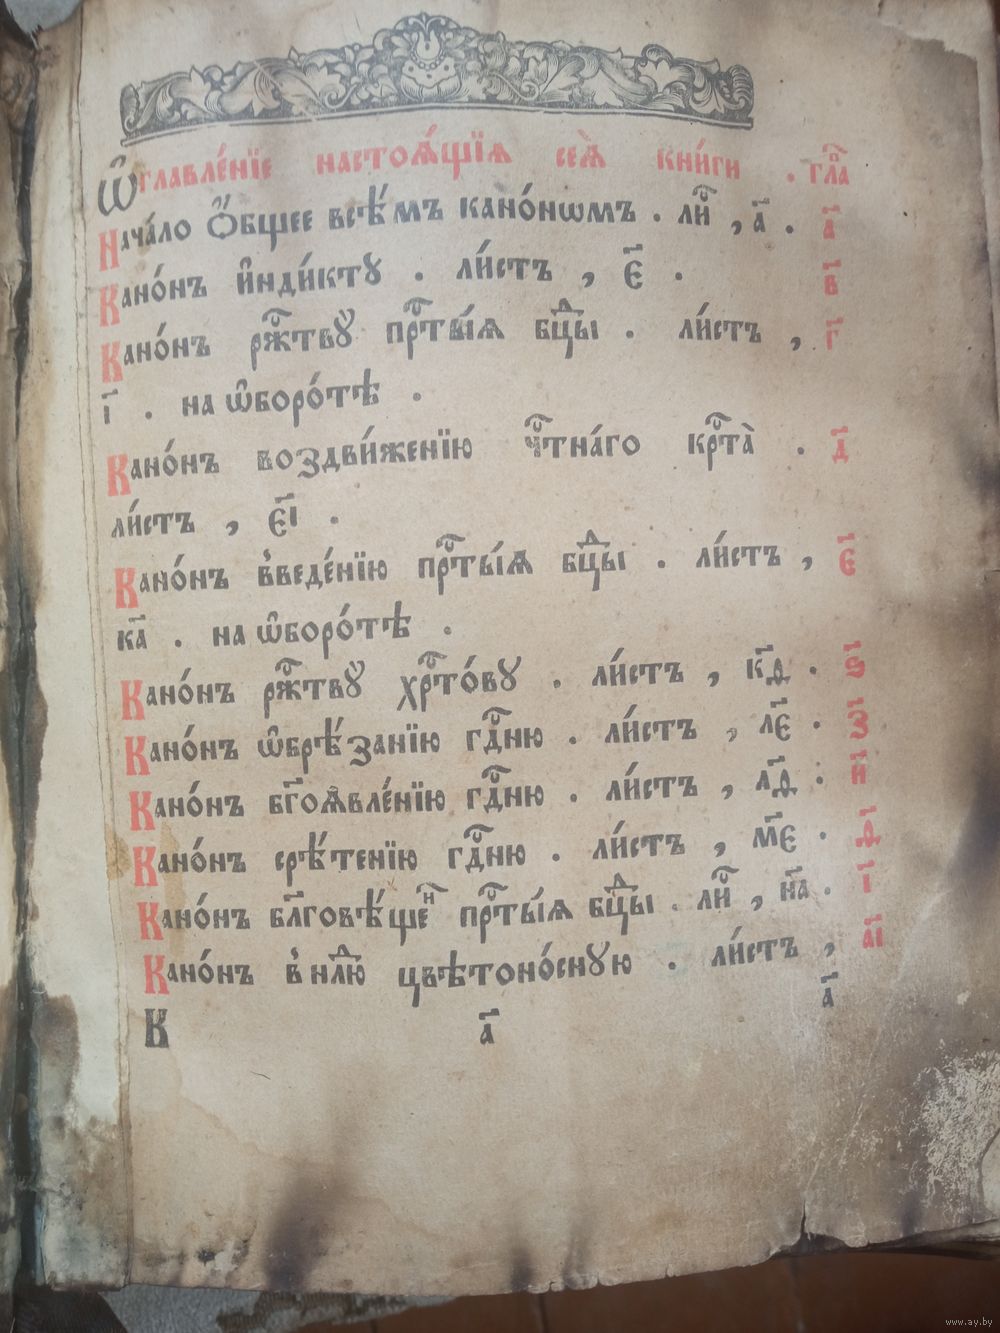 Ѡ҆главле́нїе настоѧ́щїѧ сеѧ̀ кни́ги . гла̑
Нача́ло О҆́бщее всѣ́мъ кано́нѡмъ . ли̑ , а҃ . а҃
Кано́нъ и҆нди́кту . ли́стъ , є҃ . в҃
Кано́нъ рж҃тву̀ прⷭ҇ты́ѧ бцⷣы . ли́стъ , г҃
і҃ . на ѡ҆боро́тѣ .
Кано́нъ воздви́женїю чⷭ҇тна́го крⷭ҇та̀ . д҃
ли́стъ , є҃і .
Кано́нъ в̾веде́нїю прⷭ҇ты́ѧ бцⷣы . ли́стъ , є҃
ка҃ . на ѡ҆боро́тѣ .
Кано́нъ ржⷭ҇тву̀ хрⷭ҇то́ву . ли́стъ , кѳ҃ . ѕ҃
Кано́нъ ѡ҆брѣ́занїю гдⷭ҇ню . ли́стъ , лє҃ . з҃
Кано́нъ бг҃оѧвле́нїю гдⷭ҇ню . ли́стъ , лѳ҃ . и҃
Кано́нъ срѣ́тенїю гдⷭ҇ню . ли́стъ , мє҃ . ѳ҃
Кано́нъ бл҃говѣ́щеⷩ҇ прⷭ҇ты́ѧ бцⷣы . ли̑ , на҃ . і҃
Кано́нъ в̾ нлⷣю цвѣтоно́сную . ли́стъ , а҃і
К а҃ а҃
www.ay.by